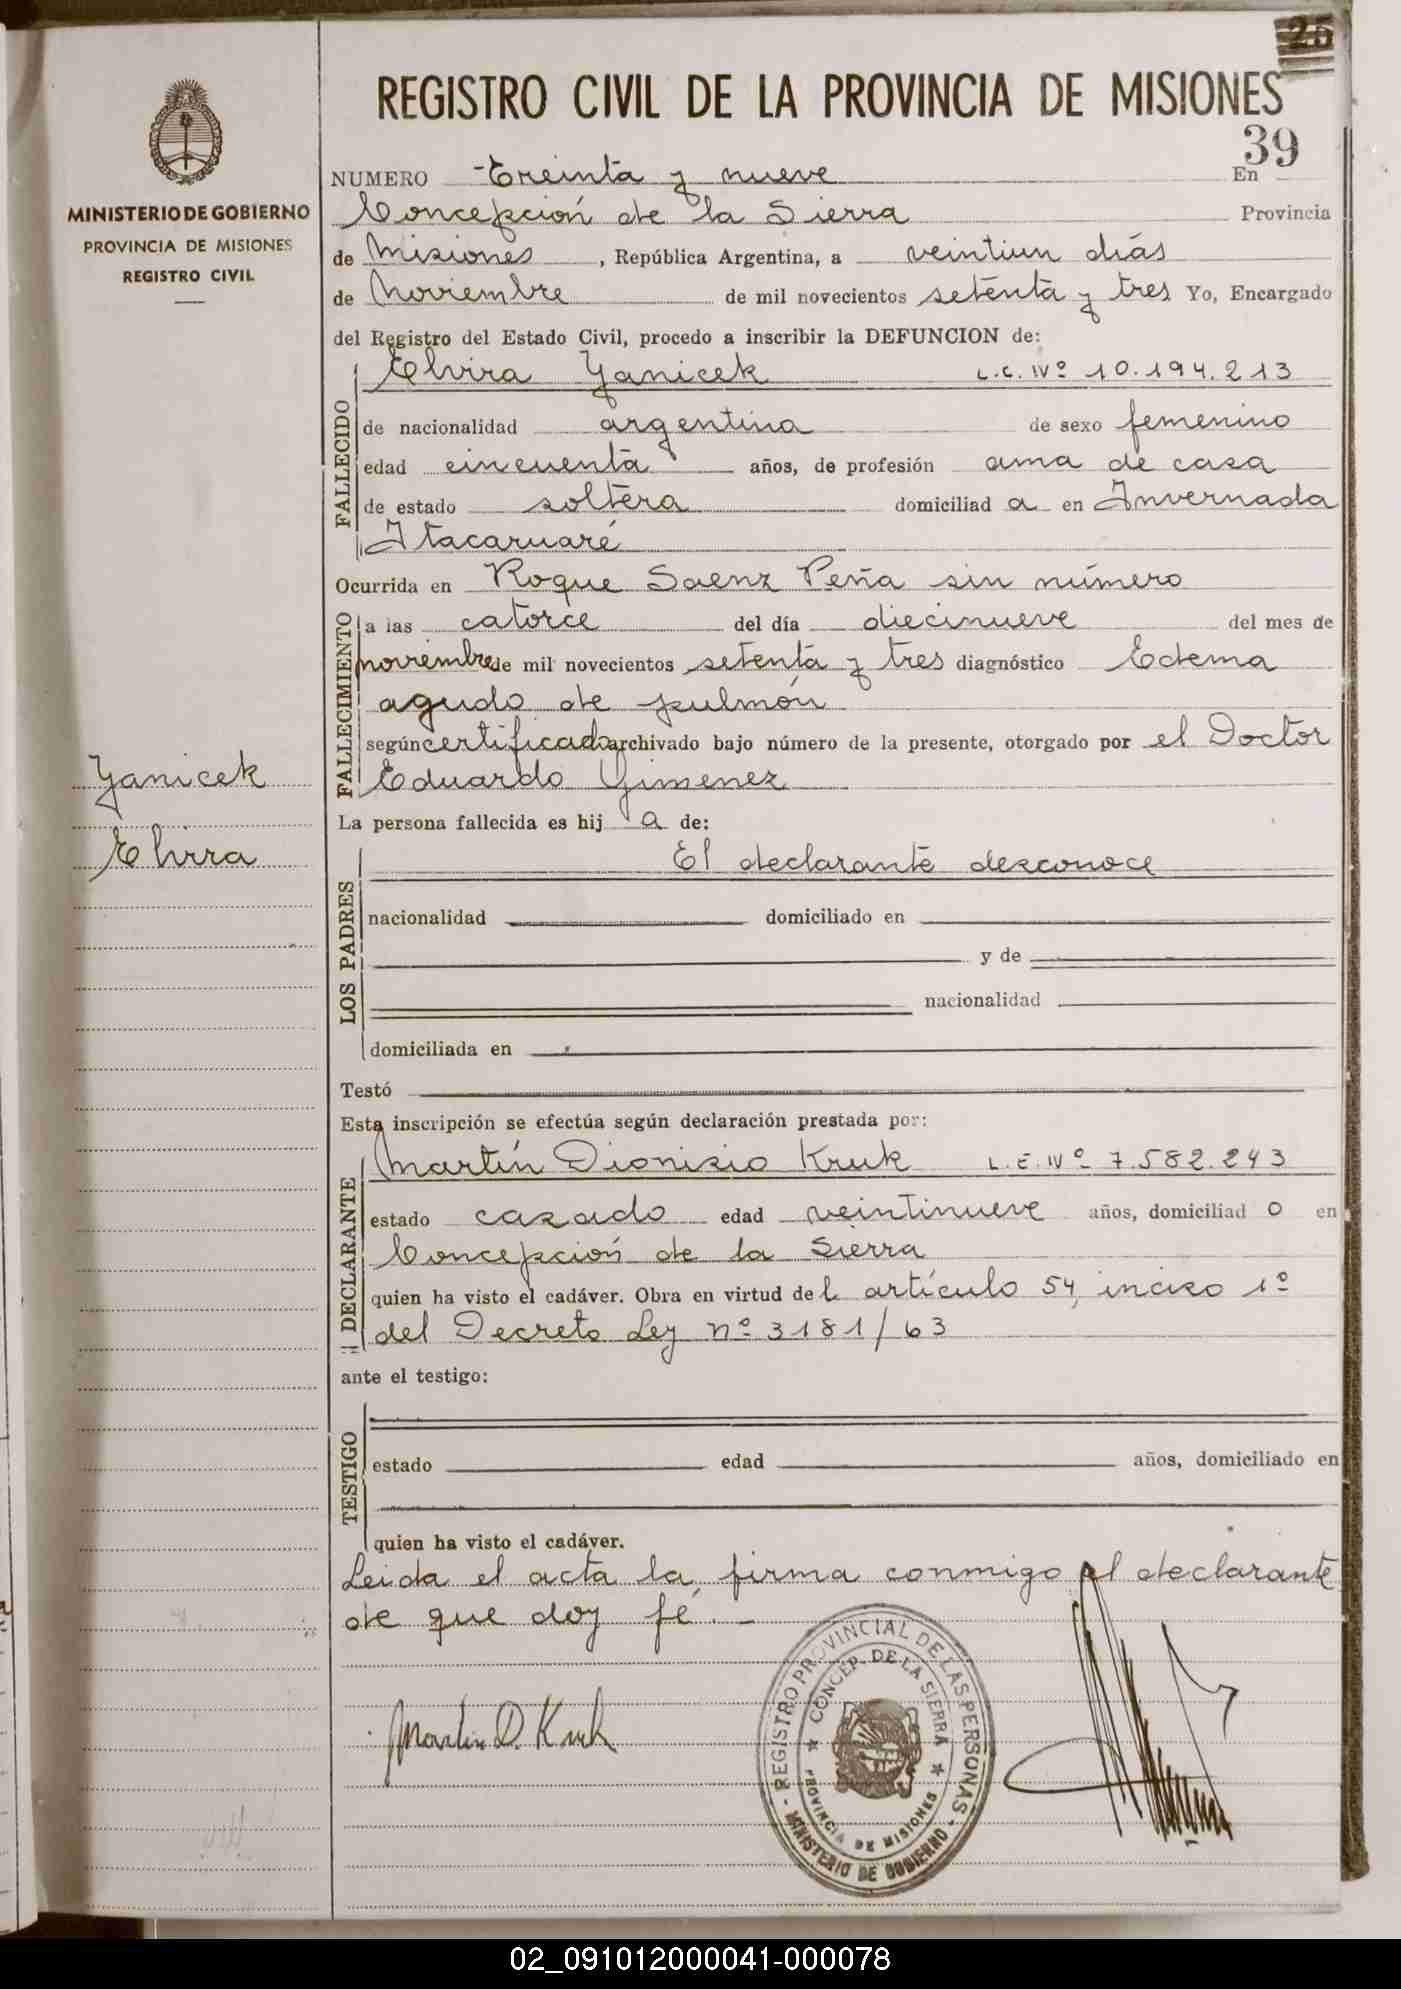 25
REGISTRO CIVIL DE LA PROVINCIA DE MISIONES
39
MINISTERIO DE GOBIERNO
PROVINCIA DE MISIONES
REGISTRO CIVIL
NUMERO Treinta y nueve En
Concepción de la Sierra Provincia
de Misiones, República Argentina, a veintiun dias
de Noviembre de mil novecientos setenta y tres Yo, Encargado
del Registro del Estado Civil, procedo a inscribir la DEFUNCION de:
FALLECIDO
Elvira Yanicek L.C. Nº 10.194.213
de nacionalidad argentina de sexo femenino
edad cincuenta años, de profesión ama de casa
de estado soltera domiciliad a en Invernada
Itacaruaré
Ocurrida en Roque Saenz Peña sin número
FALLECIMIENTO
a las catorce del día diecinueve del mes de
noviembre de mil novecientos setenta y tres diagnóstico Edema
agudo de pulmón
según certificado archivado bajo número de la presente, otorgado por el Doctor
Eduardo Gimenez
Yanicek
Elvira
La persona fallecida es hij a de:
LOS PADRES
El declarante desconoce
nacionalidad domiciliado en
y de
nacionalidad
domiciliada en
Testó
Esta inscripción se efectúa según declaración prestada por:
DECLARANTE
Martín Dionisio Kruk L.E. Nº 7.582.243
estado casado edad veintinueve años, domiciliad o en
Concepción de la Sierra
quien ha visto el cadáver. Obra en virtud del artículo 54, inciso 1º
del Decreto Ley nº 3181/63
ante el testigo:
TESTIGO
estado edad años, domiciliado en
quien ha visto el cadáver.
Leida el acta la firma conmigo el declarante
de que doy fé.-
Martin D. Kruk
REGISTRO PROVINCIAL DE LAS PERSONAS
CONCEP. DE LA SIERRA
PROVINCIA DE MISIONES
MINISTERIO DE GOBIERNO
02_091012000041-000078